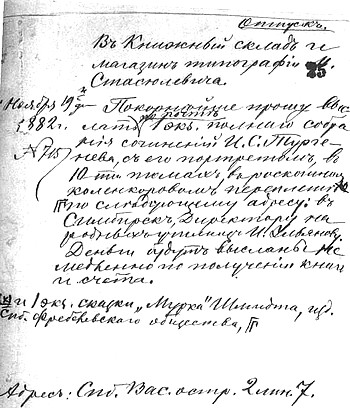 Отпускъ.
Въ Книжный складъ и
магазинъ типографіи М.
Стасюлевича.
Ноября 19 дня Покорнѣйше прошу выс-
1882 г. лать 1 экз. полнаго собра-
№ 715 нія сочиненій И. С. Турге-
нева, съ его портретомъ, въ
10 томахъ въ роскошномъ
коленкоровомъ переплетѣ
по слѣдующему адресу: въ
Симбирскъ, Директору на-
родныхъ училищъ И. Ульянову.
Деньги будутъ высланы не-
медленно по полученіи книгъ
и счета.
и 1 экз. сказки „Мурка" Шмидта, изд.
Спб. Фребелевскаго общества,
Адресъ: Спб. Вас. остр. 2 лин. 7.